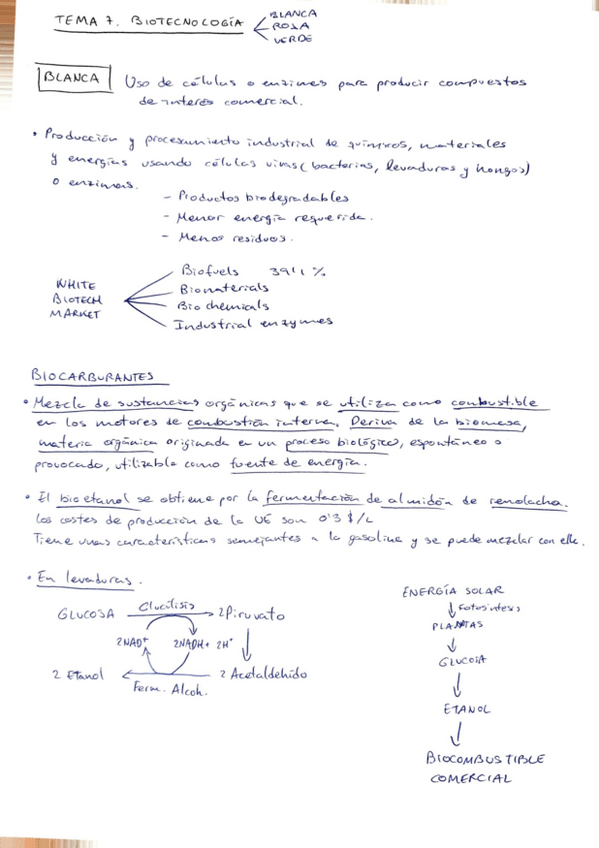 TEMA 7. BIOTECNOLOGÍA
BLANCA
ROJA
VERDE
BLANCA
Uso de células o enzimas para producir compuestos
de interés comercial.
• Producción y procesamiento industrial de químicos, materiales
y energías usando células vivas (bacterias, levaduras y hongos)
o enzimas.
- Productos biodegradables
- Menor energía requerida.
- Menos residuos.
WHITE
BIOTECH
MARKET
Biofuels 39'1 %
Biomaterials
Biochemicals
Industrial enzymes
BIOCARBURANTES
• Mezcla de sustancias orgánicas que se utiliza como combustible
en los motores de combustión interna. Deriva de la biomasa,
materia orgánica originada en un proceso biológico, espontáneo o
provocado, utilizable como fuente de energía.
• El bioetanol se obtiene por la fermentación de almidón de remolacha.
Los costes de producción de la UE son 0'3 $/L
Tiene unas características semejantes a la gasolina y se puede mezclar con ella.
• En levaduras.
GLUCOSA Glucólisis 2 Piruvato
2NAD⁺ 2NADH + 2H⁺
2 Etanol 2 Acetaldehído
Ferm. Alcoh.
ENERGÍA SOLAR
Fotosíntesis
PLANTAS
GLUCOSA
ETANOL
BIOCOMBUSTIBLE
COMERCIAL